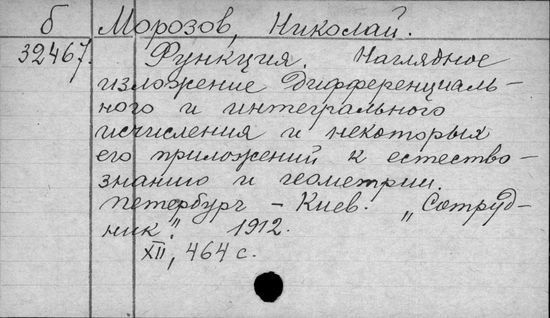 б Морозов, Николай.
32467. Функция. Наглядное
изложение дифференциаль-
ного и интегрального
исчисления и некоторых
его приложений к естество-
знанию и геометрии.
Петербург - Киев. „Сотруд-
ник". 1912.
XII, 464 с.